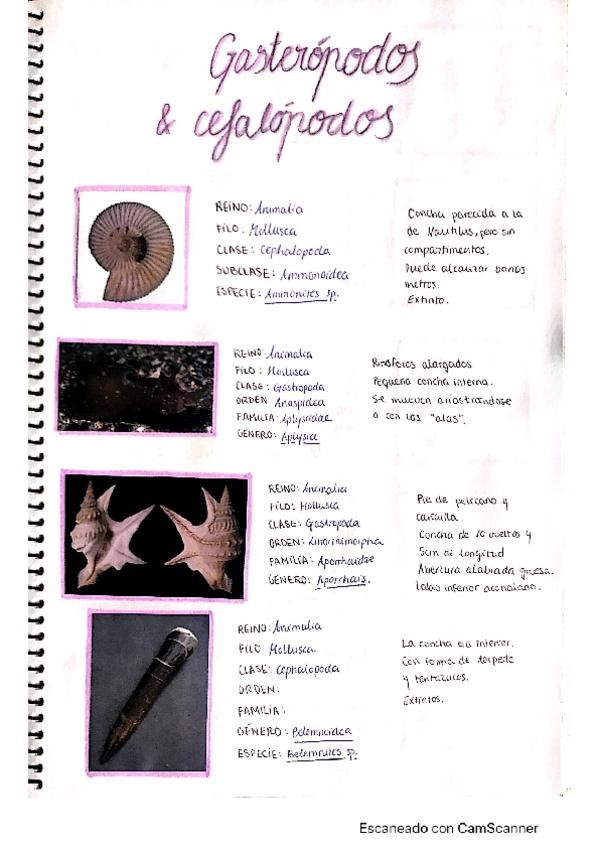 Gasterópodos
& cefalópodos
REINO: Animalia
FILO: Mollusca
CLASE: Cephalopoda
SUBCLASE: Ammonoidea
ESPECIE: Ammonites sp.
Concha parecida a la
de Nautilus, pero sin
compartimentos.
Puede alcanzar varios
metros.
Extinto.
REINO: Animalia
FILO: Mollusca
CLASE: Gastropoda
ORDEN Anaspidea
FAMILIA: Aplysiidae
GÉNERO: Aplysia
Rinóforos alargados
Pequeña concha interna.
Se mueven arrastrándose
o con las "alas".
REINO: Animalia
FILO: Mollusca
CLASE: Gastropoda
ORDEN: Littorinimorpha
FAMILIA: Aporrhaidae
GÉNERO: Aporrhais.
Pie de pelícano y
Concha de 10 vueltas y
5cm de longitud
Abertura alabiada gruesa.
Labio inferior acanalado.
REINO: Animalia
FILO Mollusca
CLASE: Cephalopoda
ORDEN:
FAMILIA:
GÉNERO: Belemnoidea
ESPECIE: Belemnites sp.
La concha era interior.
Con forma de torpedo
y tentáculos.
Extintos.
Escaneado con CamScanner